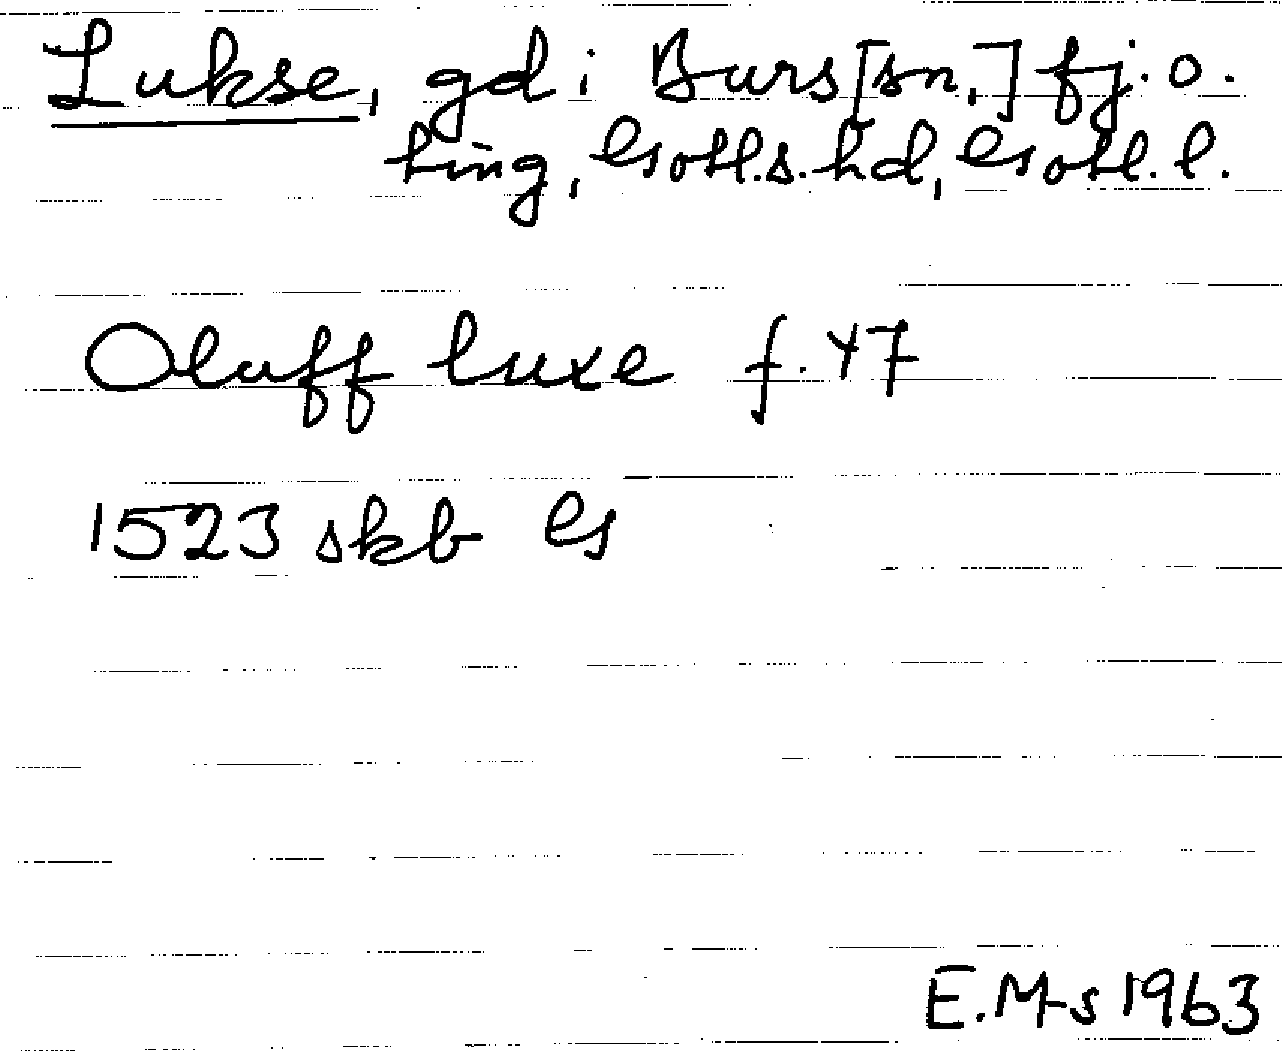 Lukse, gd i Burs [sn,] fj. o.
ting, Gotl.s. hd, Gotl. l.
Oluff luxe f. 47
1523 skb G
E.M-s 1963